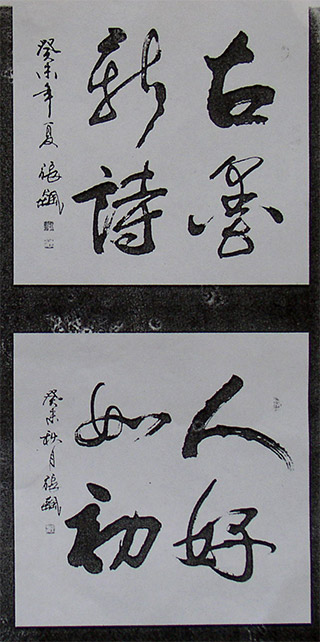 古墨
新詩
癸未年夏張
人好
如初
癸未秋月張